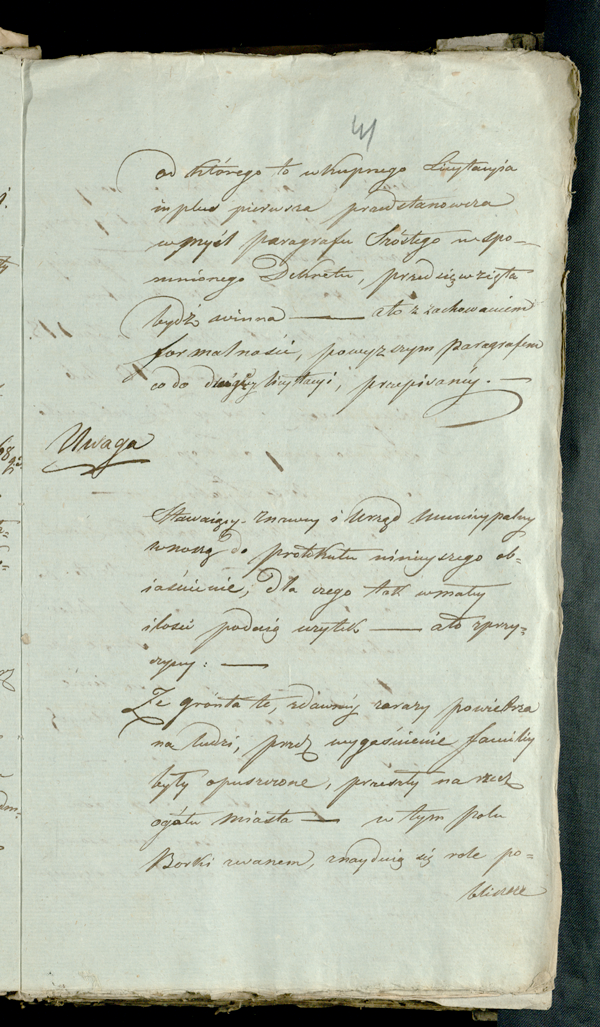 41
od którego to wkupnego Licytacyia
in plus pierwsza przedstanowcza
w myśl paragrafu Szóstego wspo-
mnionego Dekretu, przedsięwzięta
bydź winna — a to z zachowaniem
formalności, powyższym paragrafem
co do licytacyi, przepisanéy. —
Uwaga
Stawaiący znawcy i Urząd Municypalny
wnoszą do protokułu ninieyszego ob-
iaśnienie, dla czego tak w małey
ilości podaią użytek — a to z przy-
czyny: —
Że grónta te, z dawnéy zarazy powietrza
na ludzi, przez wygaśnienie familiy
były opuszczone, przeszły na rzecz
ogółu miasta — w tym polu
Borki zwanem, znayduią się role po-
bliższe